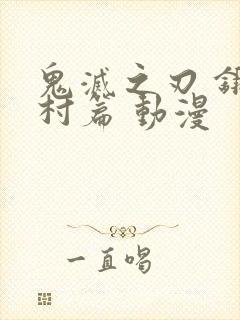 鬼滅之刃鍛
村篇 動漫
一直唱